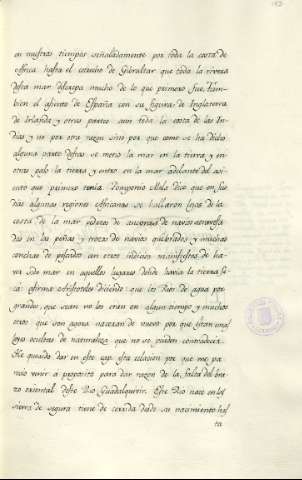 en nuestros tiempos señaladamente por toda la costa de
Africa hasta el estrecho de Gibraltar que toda la rivera
desta mar discrepa mucho de lo que primero fue. Tam-
bien el asiento de España con su figura de Inglaterra
de Irlanda y otras partes aun toda la costa de las In-
dias y no por otra razon sino por que como se ha dicho
alguna parte destas se metio la mar en la tierra y en
otras salo la tierra y entro en la mar adelante del asi-
ento que primero tenia Pomponio Mela dice que en sus
dias algunas regiones Africanas se hallaron lejos de la
costa de la mar pedazos de ancoras de navios
das en las peñas y trozos de navios quebrados y muchas
conchas de pescados con otros indicios manifiestos de ha-
ver sido mar en aquellos lugares donde havia la tierra se-
ca: afirma Aristoteles diciendo que los Rios de agua por
grandes que sean no los eran en algun tiempo y muchos
otros que son agora naceran de nuevo por que tienen unas
leyes ocultas de naturaleza que no se pueden contradecir.
He querido dar en este cap. esta relacion por que me pa-
recio venir a proposito para dar razon de la falta del bra-
zo oriental deste Rio Guadalquivir. Este Rio nace en las
sierras de segura tiene de corrida dende su nacimiento has
ta